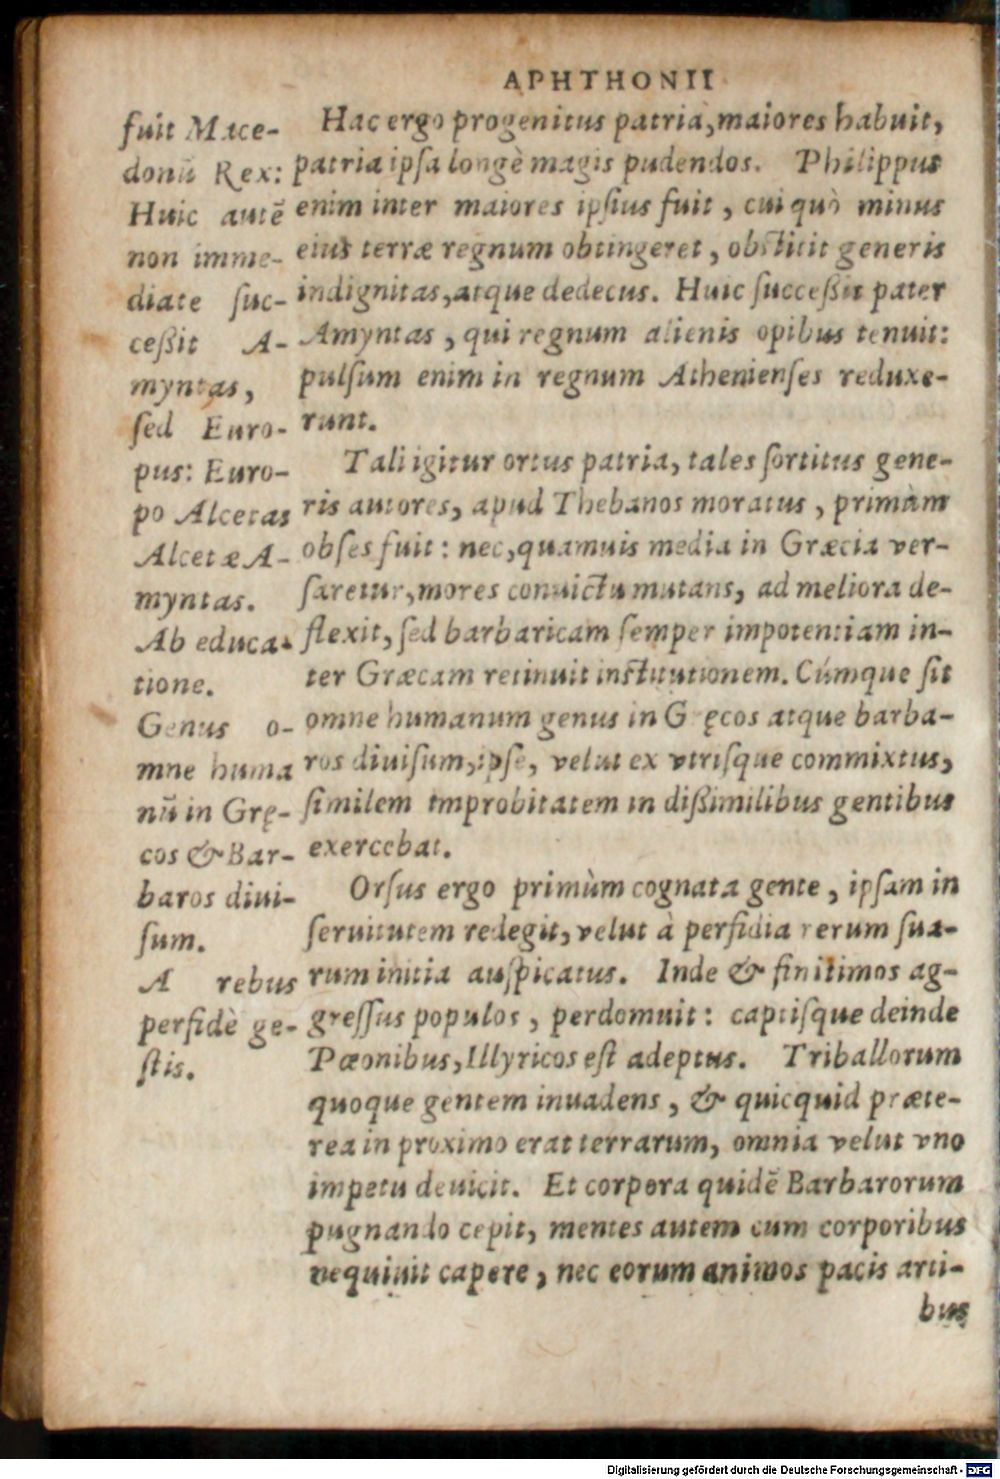 APHTHONII
fuit Mace-
donū Rex:
Huic autē
non imme-
diate suc-
ceßit A-
myntas,
sed Euro-
pus: Euro-
po Alcetas
Alcetæ A-
myntas.
Ab educa-
tione.
Genus o-
mne huma
nū in Grę-
cos & Bar-
baros diui-
sum.
A rebus
perfidè ge-
stis.
Hac ergo progenitus patria, maiores habuit,
patria ipsa longè magis pudendos. Philippus
enim inter maiores ipsius fuit, cui quò minus
eius terræ regnum obtingeret, obstitit generis
indignitas, atque dedecus. Huic succeßit pater
Amyntas, qui regnum alienis opibus tenuit:
pulsum enim in regnum Athenienses reduxe-
runt.
Tali igitur ortus patria, tales sortitus gene-
ris autores, apud Thebanos moratus, primùm
obses fuit: nec, quamuis media in Græcia ver-
saretur, mores conuictu mutans, ad meliora de-
flexit, sed barbaricam semper impotentiam in-
ter Græcam retinuit institutionem. Cúmque sit
omne humanum genus in G ęcos atque barba-
ros diuisum, ipse, velut ex vtrisque commixtus,
similem improbitatem in dißimilibus gentibus
exercebat.
Orsus ergo primùm cognata gente, ipsam in
seruitutem redegit, velut à perfidia rerum sua-
rum initia auspicatus. Inde & finitimos ag-
gressus populos, perdomuit: captisque deinde
Pæonibus, Illyricos est adeptus. Triballorum
quoque gentem inuadens, & quicquid præte-
rea in proximo erat terrarum, omnia velut vno
impetu deuicit. Et corpora quidē Barbarorum
pugnando cepit, mentes autem cum corporibus
nequiuit capere, nec eorum animos pacis arti-
bus
Digitalisierung gefördert durch die Deutsche Forschungsgemeinschaft - DFG